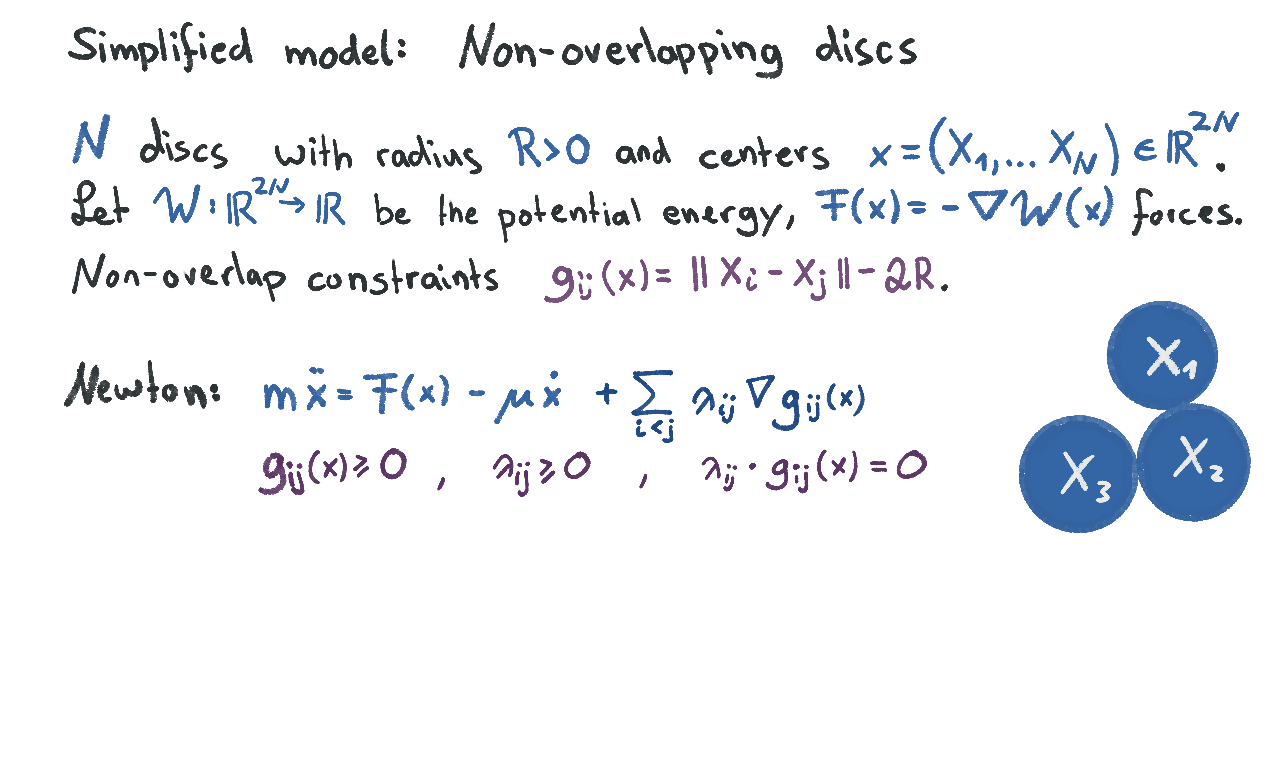 Simplified model: Non-overlapping discs
N discs with radius R>0 and centers x = (X₁,... X_N) ∈ ℝ²ᴺ.
Let W : ℝ²ᴺ → ℝ be the potential energy, F(x) = - ∇W(x) forces.
Non-overlap constraints g_ij(x) = ‖X_i - X_j‖ - 2R.
Newton: mẍ = F(x) - μẋ + ∑_{i<j} λ_ij ∇g_ij(x)
g_ij(x) ≥ 0 , λ_ij ≥ 0 , λ_ij · g_ij(x) = 0
X₁
X₂
X₃